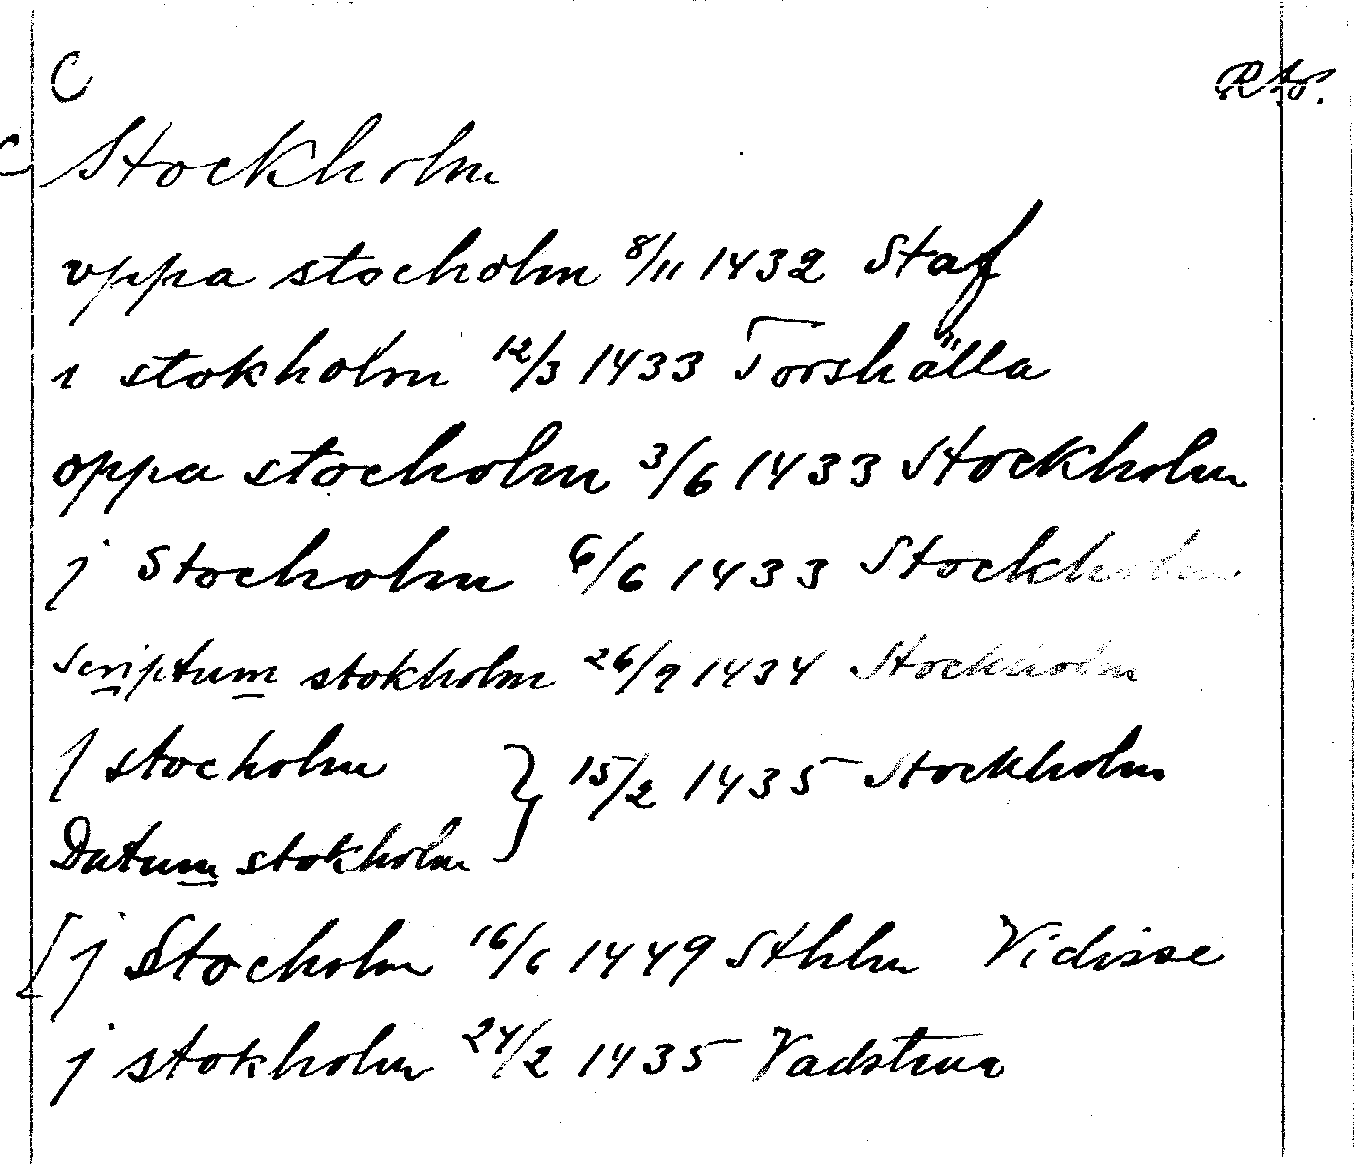 C
Stockholm
vppa stocholm 8/11 1432 Staf
i stokholm 12/3 1433 Torshälla
oppa stocholm 3/6 1433 Stockholm
j Stocholm 6/6 1433 Stockholm
scriptum stokholm 26/9 1434 Stockholm
j stocholm } 15/2 1435 Stockholm
Datum stokholm
[j Stocholm 16/6 1449 Sthlm Vidisse
j stokholm 24/2 1435 Vadstena